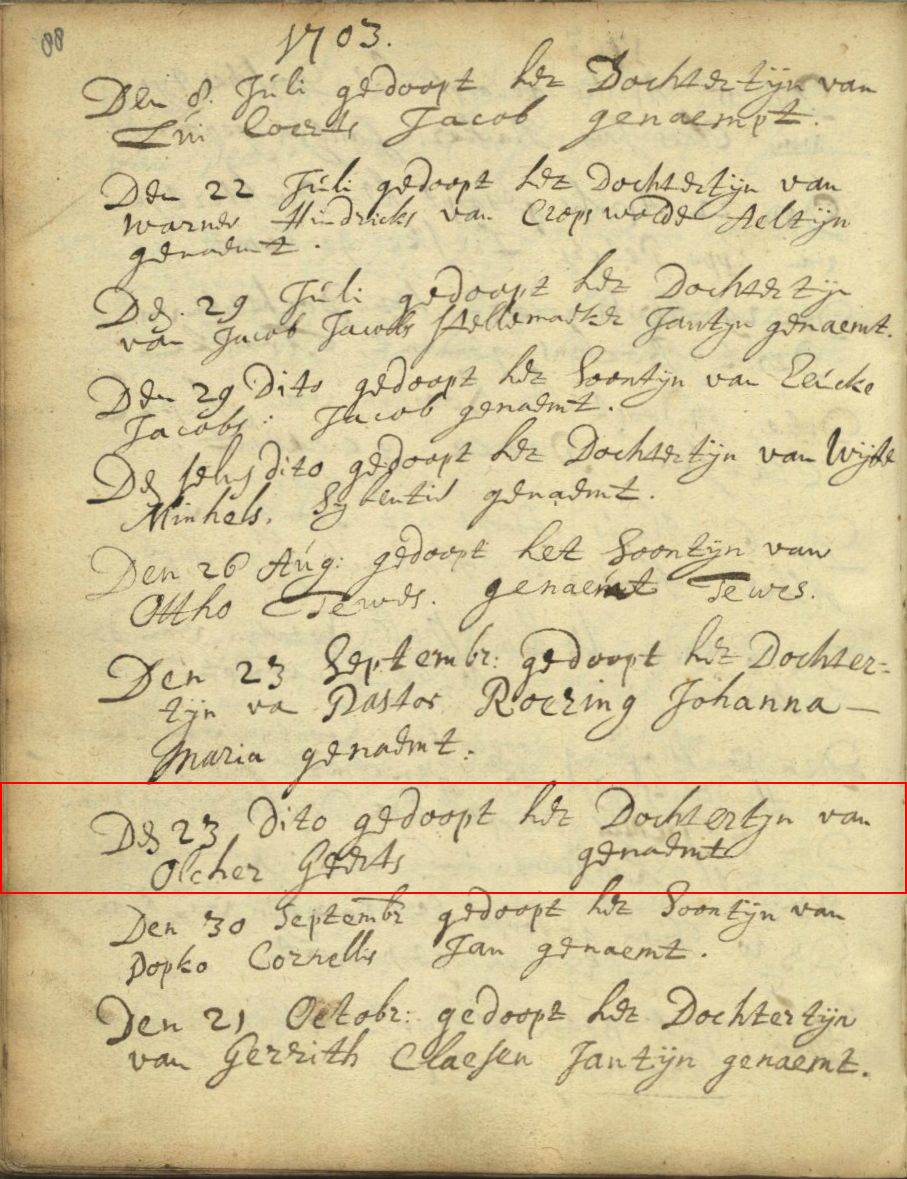 88
1703.
Den 8. Júli gedoopt het Dochtertijn van
Lúi Coerts Jacob genaempt.
Den 22 Júli gedoopt het Dochtertijn van
Warner Hindricks van Cropswolde Aeltijn
genaemt.
Den 29 Júli gedoopt het Dochtertijn
van Jacob Jacobs stellemaeker Jantijn genaemt.
Den 29 Dito gedoopt het Soontijn van
Jacobs: Jacob genaemt.
Den selvs dito gedoopt het Dochtertijn van Wijbe
Minhels. genaemt.
Den 26 Aúg: gedoopt het Soontijn van
Ottho Tewes. genaemt Tewes.
Den 23 Septembr: gedoopt het Dochter=
tijn va Pastor Roering Johanna —
Maria genaemt.
Den 23 Dito gedoopt het Dochtertijn van
Olcher Geerts genaemt
Den 30 Septembr gedoopt het Soontijn van
Popko Cornellis Jan genaemt.
Den 21 Octobr: gedoopt het Dochtertijn
van Gerrith Claesen Jantijn genaemt.